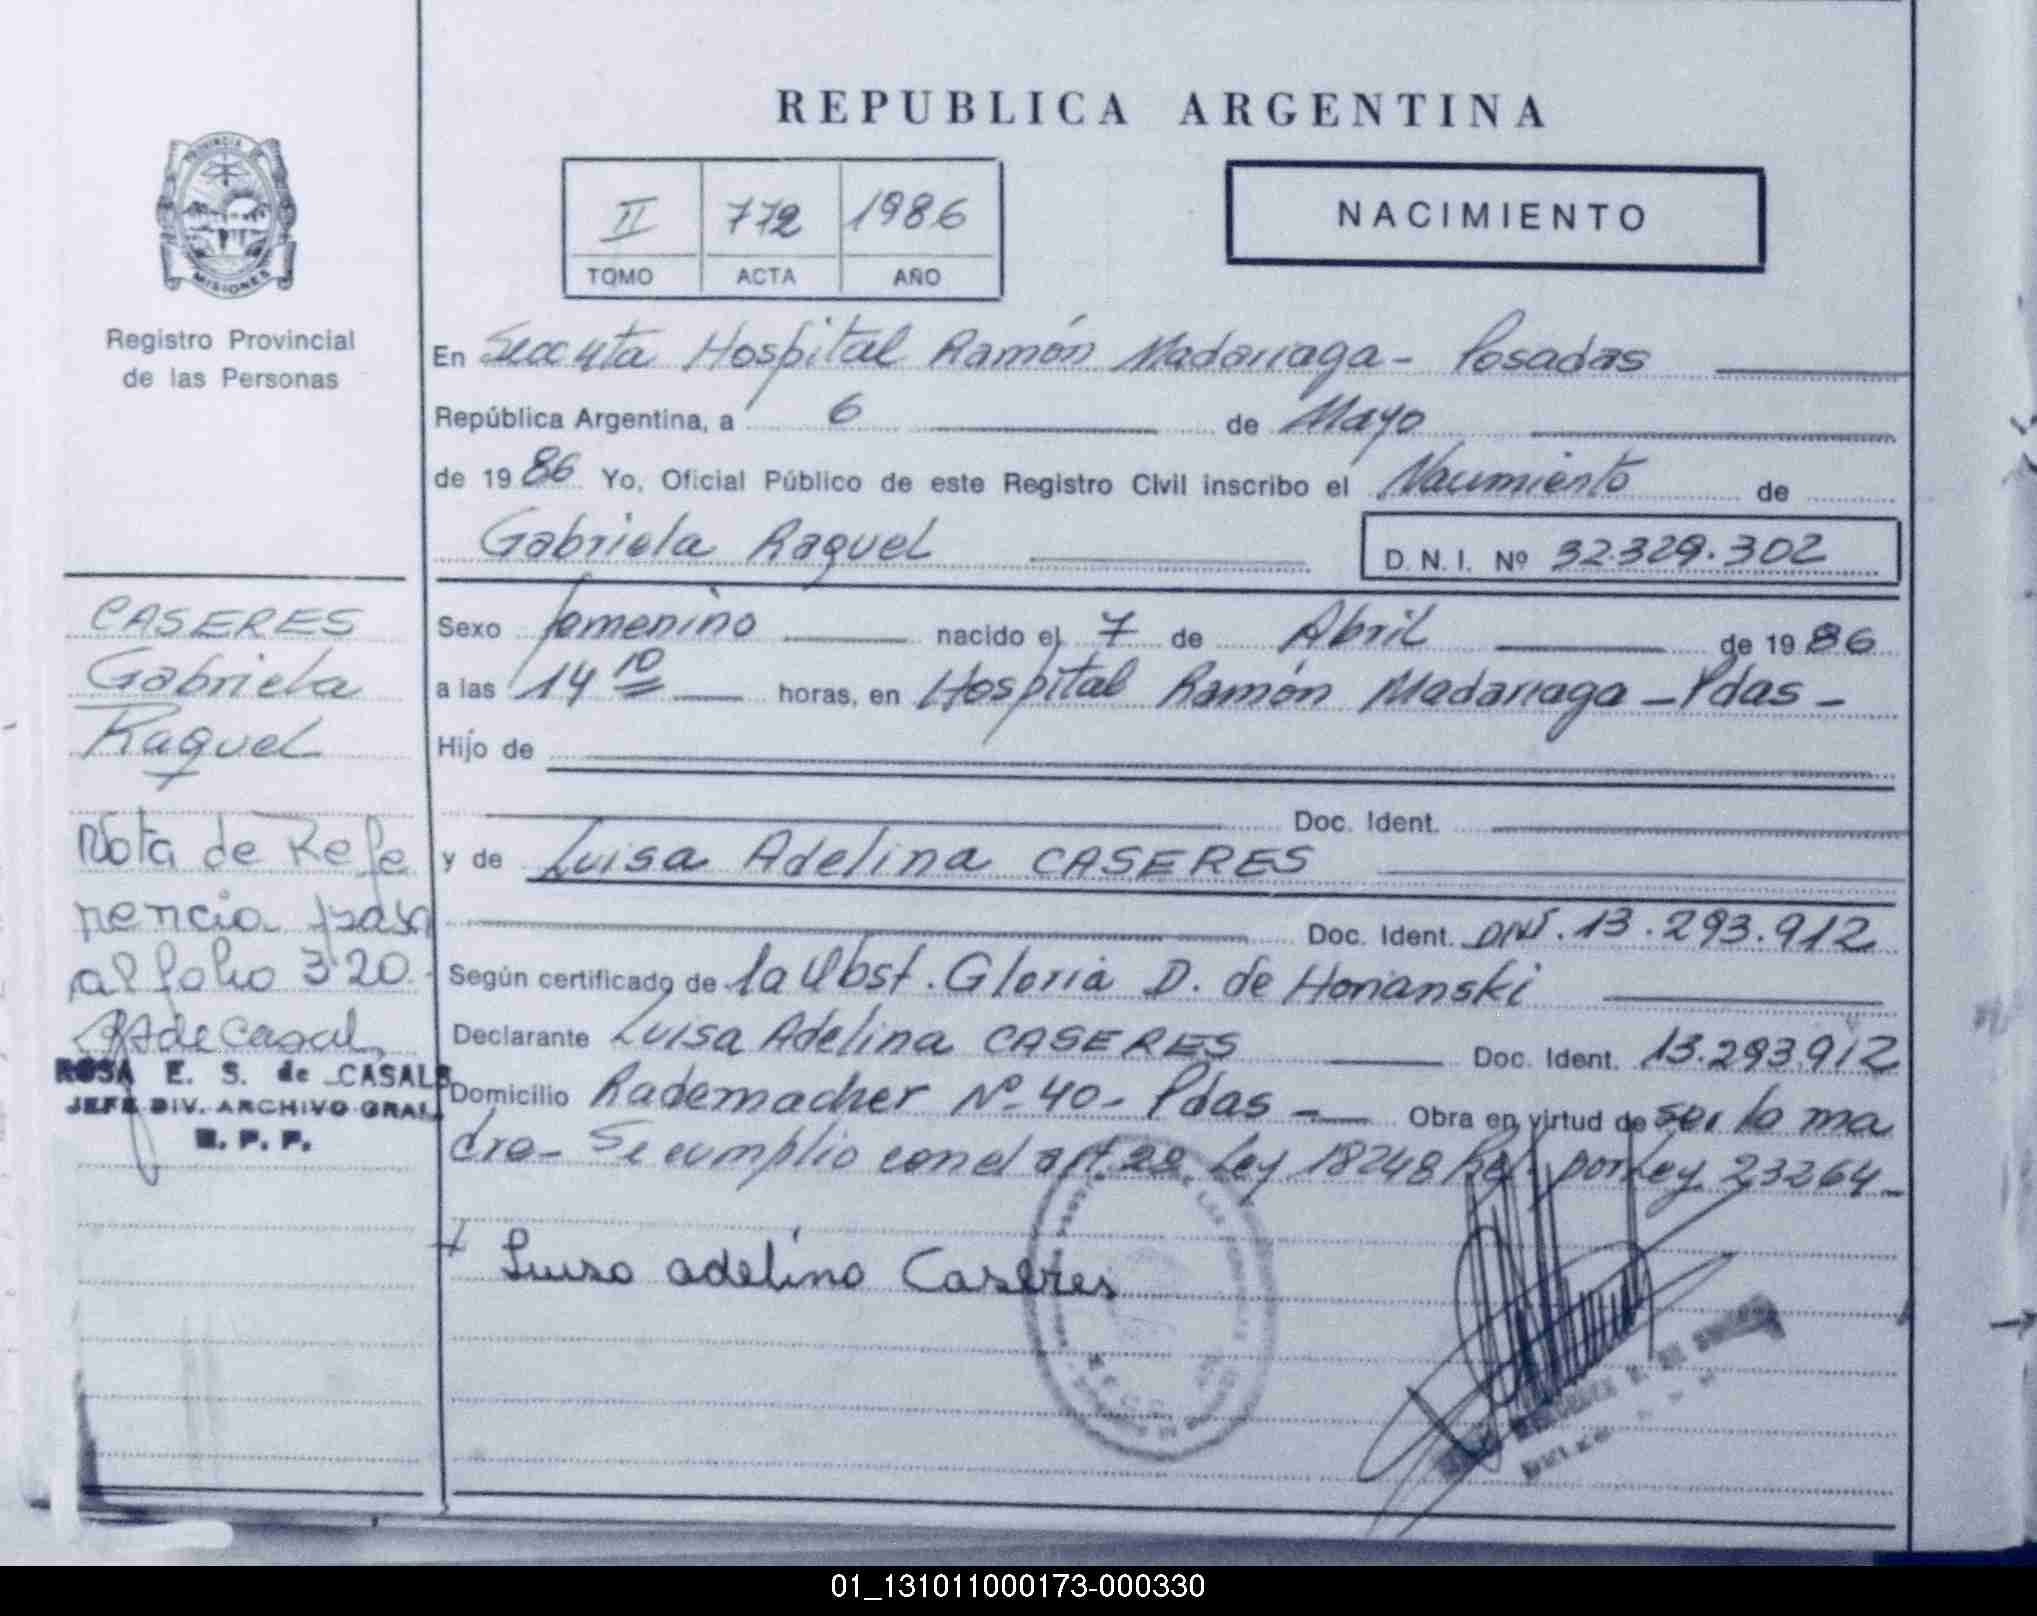 REPUBLICA ARGENTINA
PROVINCIA DE
MISIONES
Registro Provincial
de las Personas
II 772 1986
TOMO ACTA AÑO
NACIMIENTO
En Hospital Ramón Madariaga - Posadas
República Argentina, a 6 de Mayo
de 1986 Yo, Oficial Público de este Registro Civil inscribo el Nacimiento de
Gabriela Raquel
D. N. I. Nº 32.329.302
CASERES
Gabriela
Raquel
Sexo femenino nacido el 7 de Abril de 1986
a las 14 10 horas, en Hospital Ramón Madariaga - Pdas -
Hijo de
Doc. Ident.
y de Luisa Adelina CASERES
Doc. Ident. DNI. 13.293.912
Según certificado de la Obst. Gloria D. de Honanski
Declarante Luisa Adelina CASERES Doc. Ident. 13.293.912
Domicilio Rademacher Nº 40 - Pdas - Obra en virtud de ser la ma
dre - Se cumplio con el art. Ley 18248 por Ley 23264 -
Nota de Refe
rencia pasa
al folio 320 -
de Casal
ROSA E. S. de CASALS
JEFE DIV. ARCHIVO GRAL.
R. P. P.
Luisa adelina Caseres
01_131011000173-000330